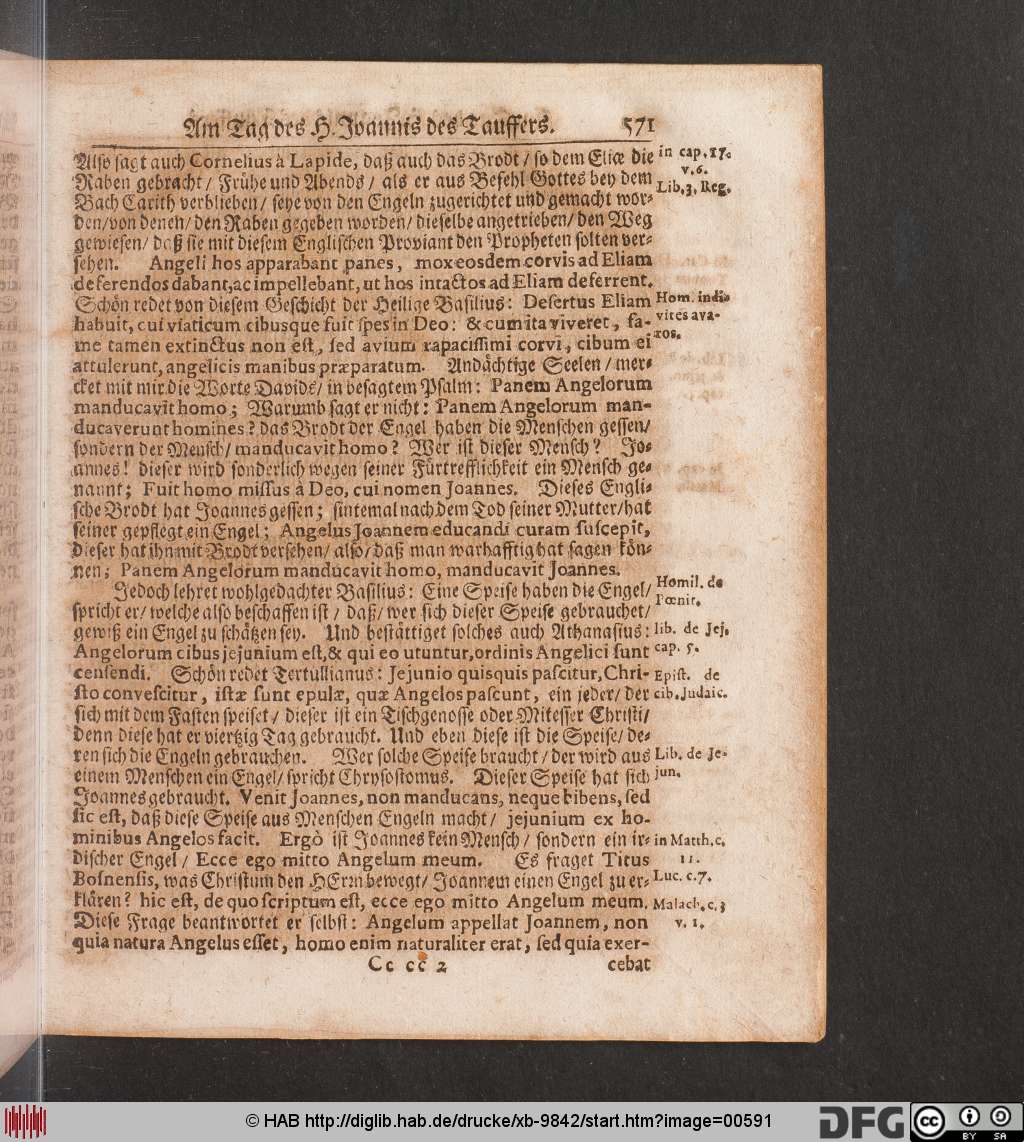 Am Tag des H. Joannis des Tauffers. 571
Also sagt auch Cornelius à Lapide, daß auch das Brodt / so dem Eliæ die
in cap. 17.
Raben gebracht / Frühe und Abends / als er aus Befehl Gottes bey dem
v. 6.
Lib. 3. Reg.
Bach Carith verblieben / seye von den Engeln zugerichtet und gemacht wor-
den / von denen / den Raben gegeben worden / dieselbe angetrieben / den Weg
gewiesen / daß sie mit diesem Englischen Proviant den Propheten solten ver-
sehen. Angeli hos apparabant panes, mox eosdem corvis ad Eliam
deferendos dabant, ac impellebant, ut hos intactos ad Eliam deferrent.
Schön redet von diesem Geschicht der Heilige Basilius: Desertus Eliam
Hom. indi-
habuit, cui viaticum cibusque fuit spes in Deo: & cum ita viveret, fa-
vites ava-
me tamen extinctus non est, sed avium rapacissimi corvi, cibum ei
ros.
attulerunt, angelicis manibus præparatum. Andächtige Seelen / mer-
cket mit mir die Worte Davids / in besagtem Psalm: Panem Angelorum
manducavit homo; Warumb sagt er nicht: Panem Angelorum man-
ducaverunt homines? das Brodt der Engel haben die Menschen gessen /
sondern der Mensch / manducavit homo? Wer ist dieser Mensch? Jo-
annes! dieser wird sonderlich wegen seiner Fürtrefflichkeit ein Mensch ge-
nannt; Fuit homo missus à Deo, cui nomen Joannes. Dieses Engli-
sche Brodt hat Joannes gessen; sintemal nach dem Tod seiner Mutter / hat
seiner gepflegt ein Engel; Angelus Joannem educandi curam suscepit,
dieser hat ihn mit Brodt versehen / also / daß man warhafftig hat sagen kön-
nen; Panem Angelorum manducavit homo, manducavit Joannes.
Jedoch lehret wohlgedachter Basilius: Eine Speise haben die Engel /
Homil. de
spricht er / welche also beschaffen ist / daß / wer sich dieser Speise gebrauchet /
Pœnit.
gewiß ein Engel zu schätzen sey. Und bestättiget solches auch Athanasius:
lib. de Jej.
Angelorum cibus jejunium est, & qui eo utuntur, ordinis Angelici sunt
cap. 5.
censendi. Schön redet Tertullianus: Jejunio quisquis pascitur, Chri-
Epist. de
sto convescitur, istæ sunt epulæ, quæ Angelos pascunt, ein jeder / der
cib. Judaic.
sich mit dem Fasten speiset / dieser ist ein Tischgenosse oder Mitesser Christi /
denn diese hat er viertzig Tag gebraucht. Und eben diese ist die Speise / de-
ren sich die Engeln gebrauchen. Wer solche Speise braucht / der wird aus
Lib. de Je-
einem Menschen ein Engel / spricht Chrysostomus. Dieser Speise hat sich
jun.
Joannes gebraucht. Venit Joannes, non manducans, neque bibens, sed
sic est, daß diese Speise aus Menschen Engeln macht / jejunium ex ho-
minibus Angelos facit. Ergò ist Joannes kein Mensch / sondern ein ir-
in Matth. c.
discher Engel / Ecce ego mitto Angelum meum. Es fraget Titus
11.
Bosnensis, was Christum den HErrn bewegt / Joannem einen Engel zu er-
Luc. c. 7.
klären? hic est, de quo scriptum est, ecce ego mitto Angelum meum.
Malach. c. 3
Diese Frage beantwortet er selbst: Angelum appellat Joannem, non
v. 1.
quia natura Angelus esset, homo enim naturaliter erat, sed quia exer-
Cc cc 2 cebat
© HAB http://diglib.hab.de/drucke/xb-9842/start.htm?image=00591
DFG
cc BY SA